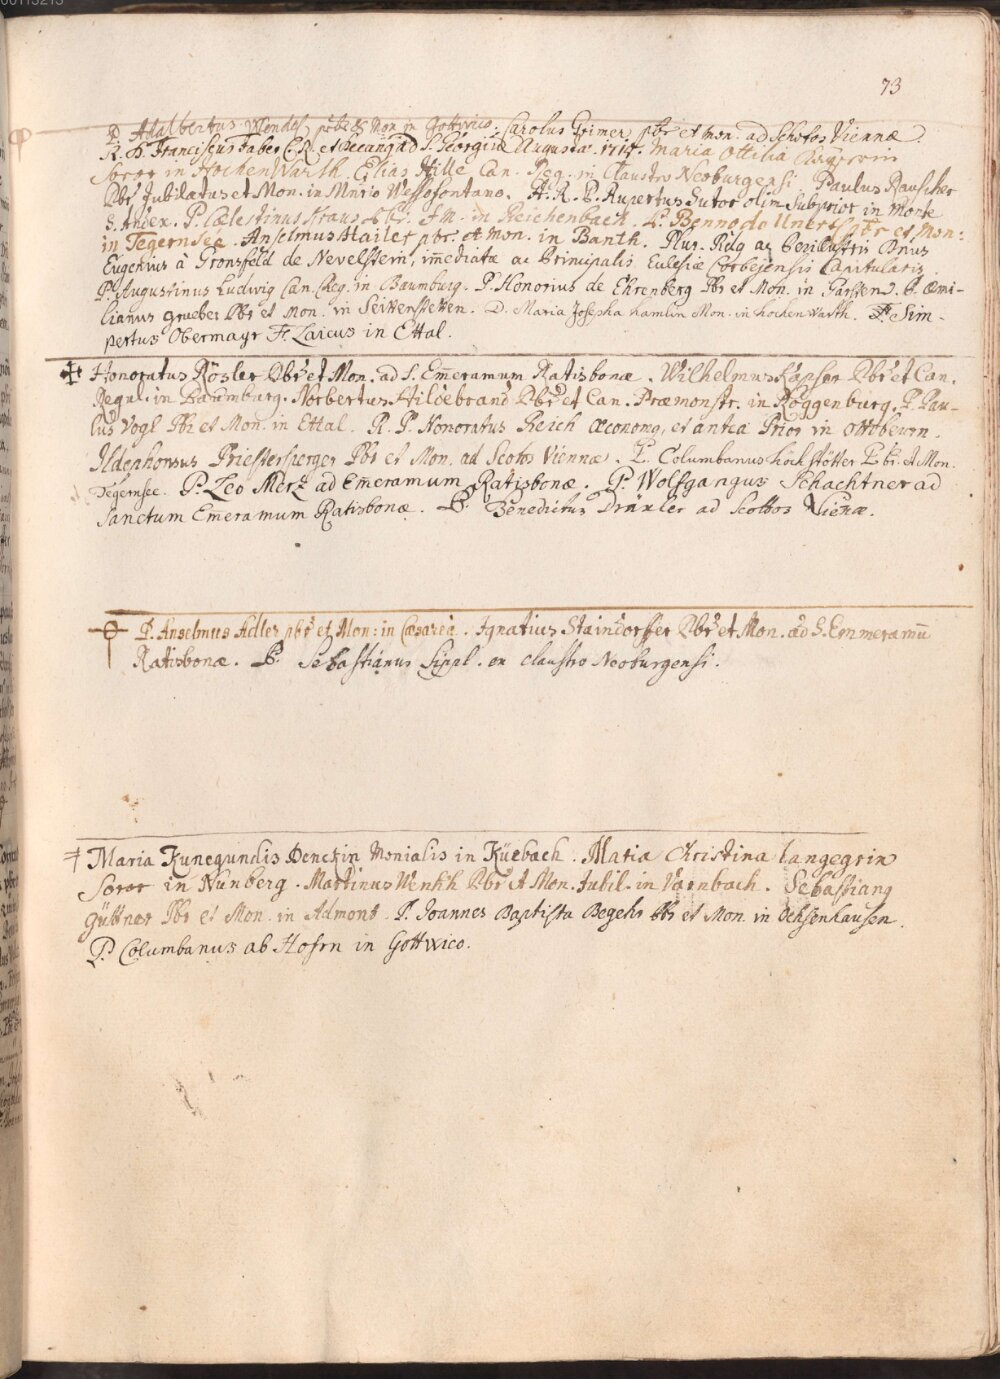 00115213
73
P. Adalbertus Mendel pbr et Mon. in Gottwico. Carolus Grimer pbr et Mon. ad Schotos Viennæ.
R. D. Franciscus Faber C.R. et Decanus ad S. Georgiū Augustæ. 1717. Maria Ottilia
Soror in HochenWarth. Elias Hille Can. Reg. in Claustro Neoburgensi. Paulus Rauscher
Pbr Jubilatus et Mon. in Mnrio Wessofontano. A. R. P. Rupertus Sutor olim Subprior in Monte
S. Andex. P. Cælestinus Kraus Pbr. et M. in Reichenbach. P. Benno de Unertl Pbr et Mon:
in TegernSee. Anselmus Hailer pbr. et Mon. in Banth. Plur. Rdg ac Perillustris Dnus
Eugenius à Gronsfeld de Nevelstein, im̄ediatæ ac Principalis Eulesiæ Corbejensis Capitularis.
P. Augustinus Ludwig Can. Reg. in Baumburg. P. Honorius de Ehrenberg Pbr et Mon. in Garsten. P. Æmi-
lianus grueber Pbr et Mon. in Seittenstetten. D. Maria Josepha hamlin Mon. in hochenwarth. Fr Sim-
pertus Obermayr Fr. Laicus in Ettal.
Honoratus Rösler Pbr et Mon. ad S. Em̄eramum Ratisbonæ. Wilhelmus Kapser Pbr et Can.
Regul. in Baumburg. Norbertus Hildebrand Pbr et Can. Præmonstr. in Roggenburg. P. Pau-
lus Vogl Pbr et Mon. in Ettal. R. P. Honoratus Reich œconomg, et antea Prior in ottobeurn.
Ildephonsus Priestersperger Pbr et Mon. ad Scotos Viennæ. P. Columbanus höckstötter Pbr. et Mon.
Tegernsee. P. Leo Merz ad Em̄eramum Ratisbonæ. P. Wolfgangus Schachtner ad
Sanctum Em̄eramum Ratisbonæ. P. Benedictus Dräxler ad Scottos Vien̄æ.
P. Anselmus Adler pbr et Mon: in Cæsareâ. Ignatius Staindorffer Pbr et Mon. ad S. Emmeramū
Ratisbonæ. P. Sebastianus Lippl. ex claustro Neoburgensi.
Maria Kunegundis Denckin Monialis in Küebach. Maria Christina Langegrin
Soror in Nunberg. Martinus Wenkh Pbr et Mon. Jubil. in Varnbach. Sebastiang
güttner Pbr et Mon. in Admont. P. Joannes Baptista Begehr Pbr et Mon. in Ochsenhausen.
P. Columbanus ab Hofrn in Gottwico.